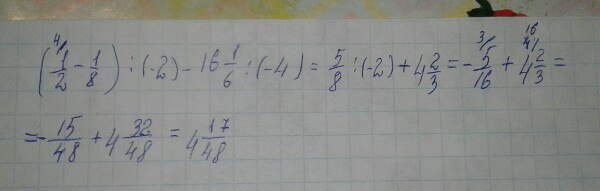 (⁴/1/2 - 1/8) : (-2) - 16 1/6 : (-4) = 5/8 : (-2) + 4 2/3 = - ³/5/16 + ¹⁶/4 2/3 =
= - 15/48 + 4 32/48 = 4 17/48